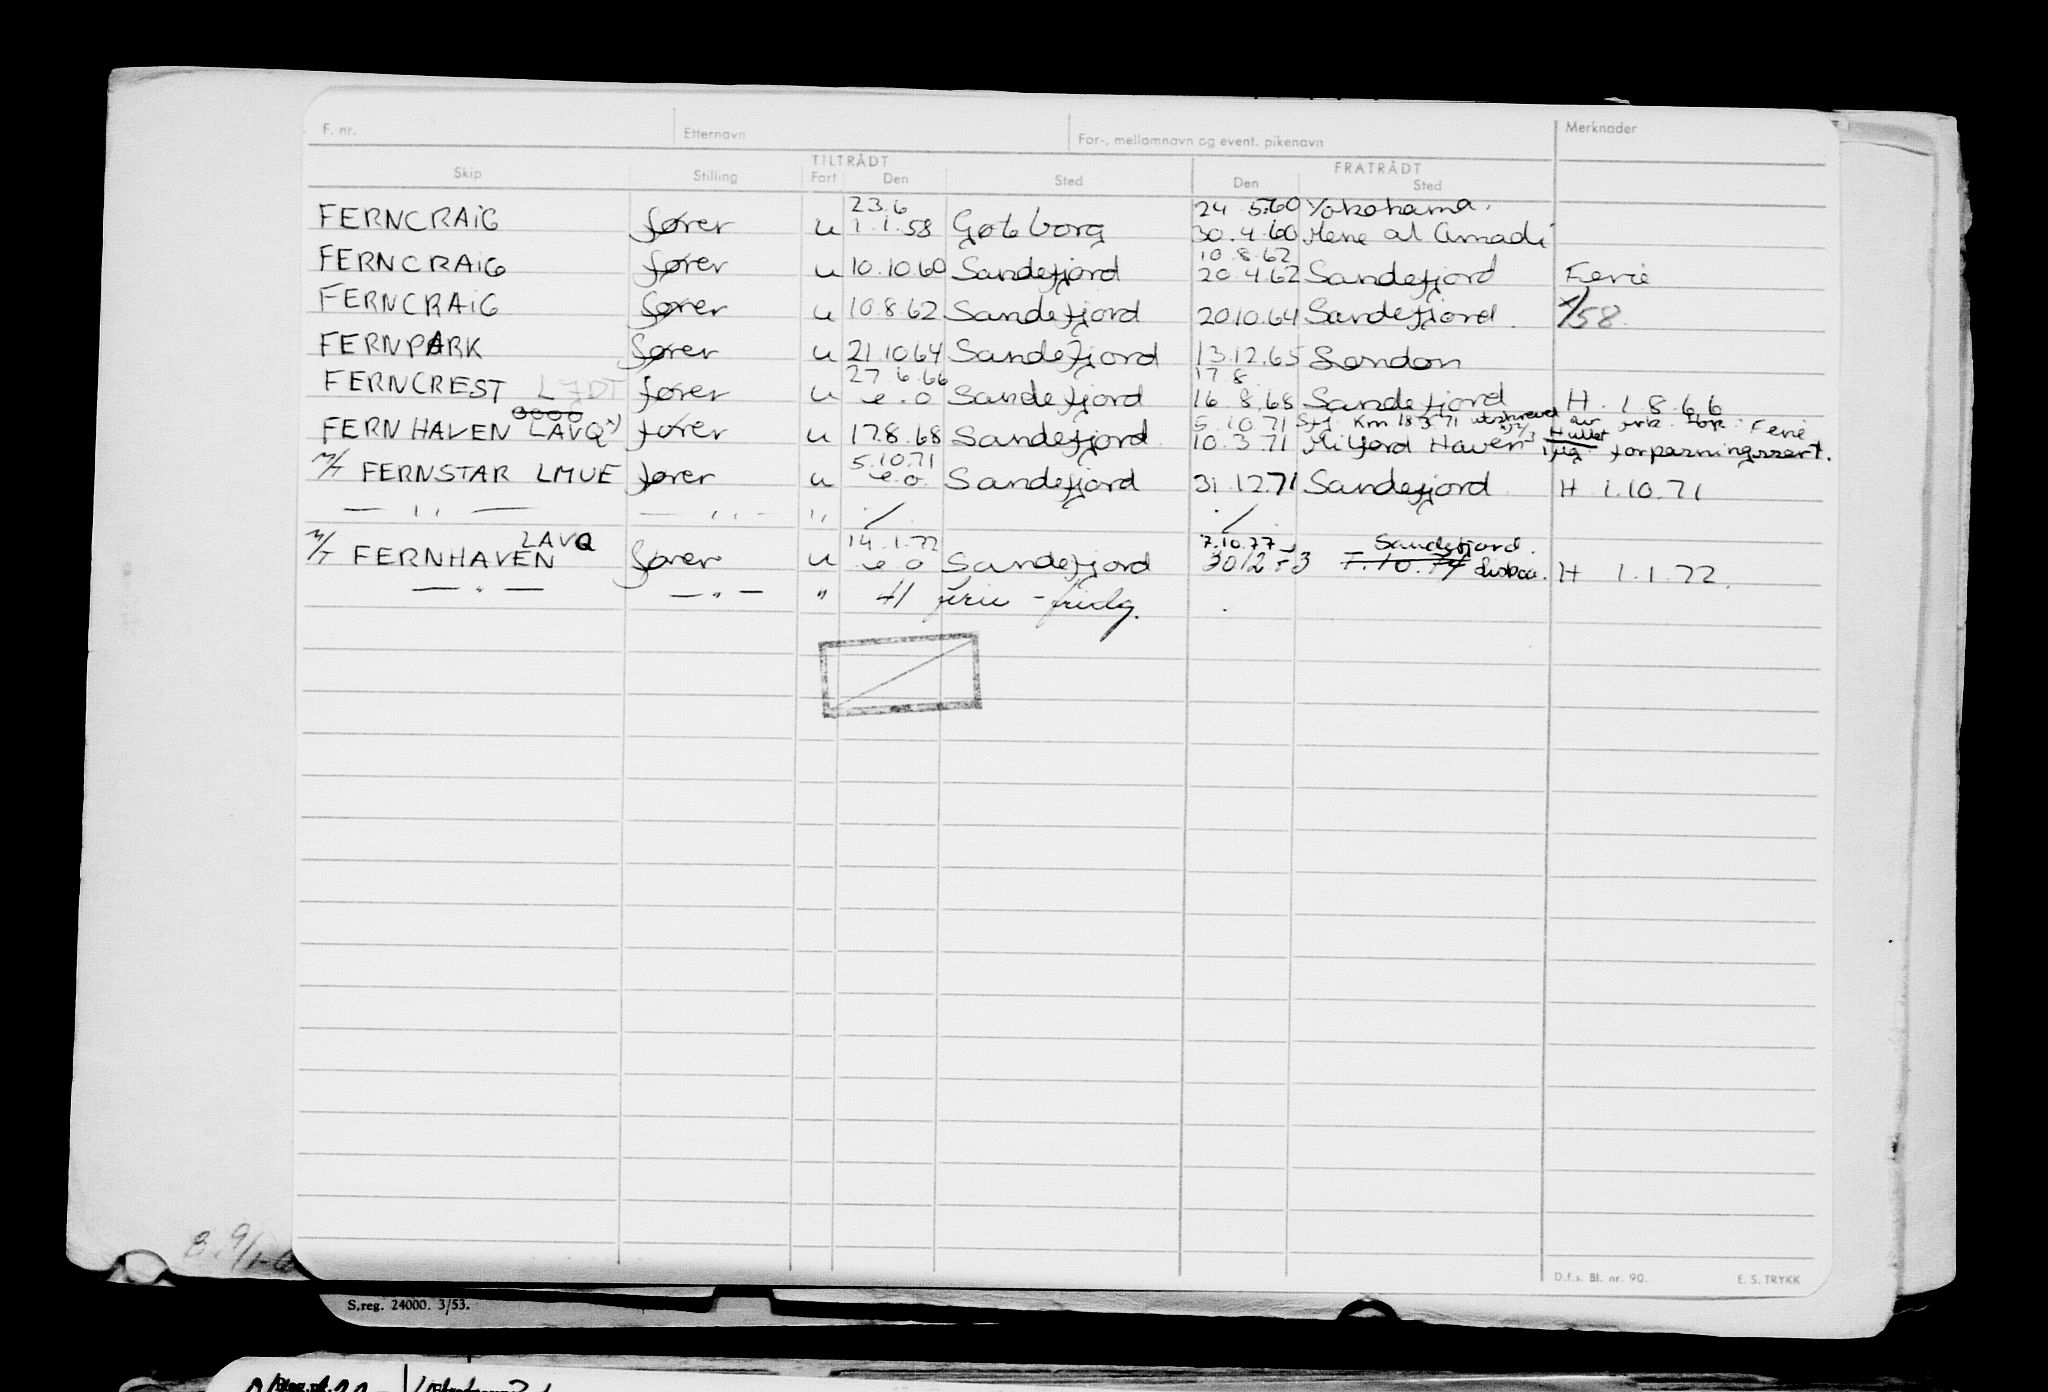 F. nr. Etternavn For-, mellomnavn og event. pikenavn Merknader
TILTRÅDT FRATRÅDT
Skip Stilling Fart Den Sted Den Sted
23.6 24 5.60 Yokohama.
FERNCRAIG fører u 1.1.58 Gøteborg 30.4.60 Mene al Amadi
10.8.62
FERNCRAIG fører u 10.10.60 Sandefjord 20.4.62 Sandefjord Ferie
FERNCRAIG fører u 10.8.62 Sandefjord 20.10.64 Sandefjord. /58.
FERNPARK fører u 21.10.64 Sandefjord 13.12.65 London
27.6.66 17.8
FERNCREST fører u e.o Sandefjord 16.8.68 Sandefjord H. 1 8.66
5.10.71 Sfj Km 18.3.71 Ferie
FERNHAVEN LAVQ x) fører u 17.8.68 Sandefjord 10.3.71 Milford Haven forpasningssert.
5.10.71
M/T FERNSTAR LMUE fører u e.o. Sandefjord 31.12.71 Sandefjord H 1.10.71
— ,, — — ,, — ,, / . /
LAVQ 14.1.72 7.10.77 Sandefjord.
M/T FERNHAVEN fører u e o Sandefjord 30/12-73 7.10.74 Lisboa. H 1.1.72.
— " — — " — " ferie -
B. 9/
D.f.s. Bl. nr. 90. E. S. TRYKK
S.reg. 24000. 3/53.